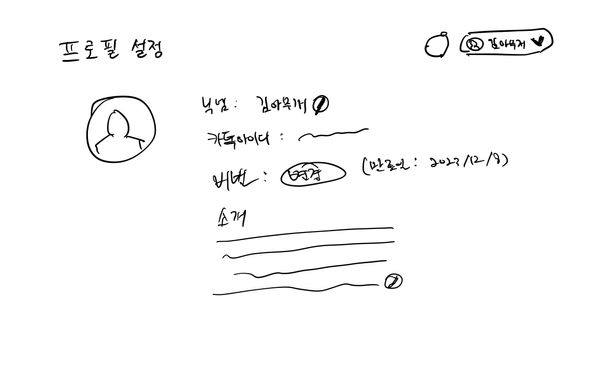 프로필 설정
김아무개
닉넴 : 김아무개
카톡아이디 :
비번 : 변경 (만료일 : 2023/12/8)
소개